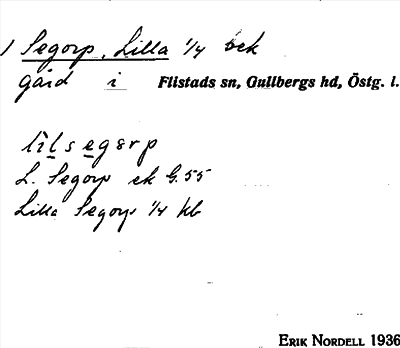 1 Segorp, Lilla 1/4 ock
gård i Flistads sn, Gullbergs hd, Östg. l.
lìlsegørp
L. Segorp ek G.55
Lilla Segorp 1/4 kb
ERIK NORDELL 1936